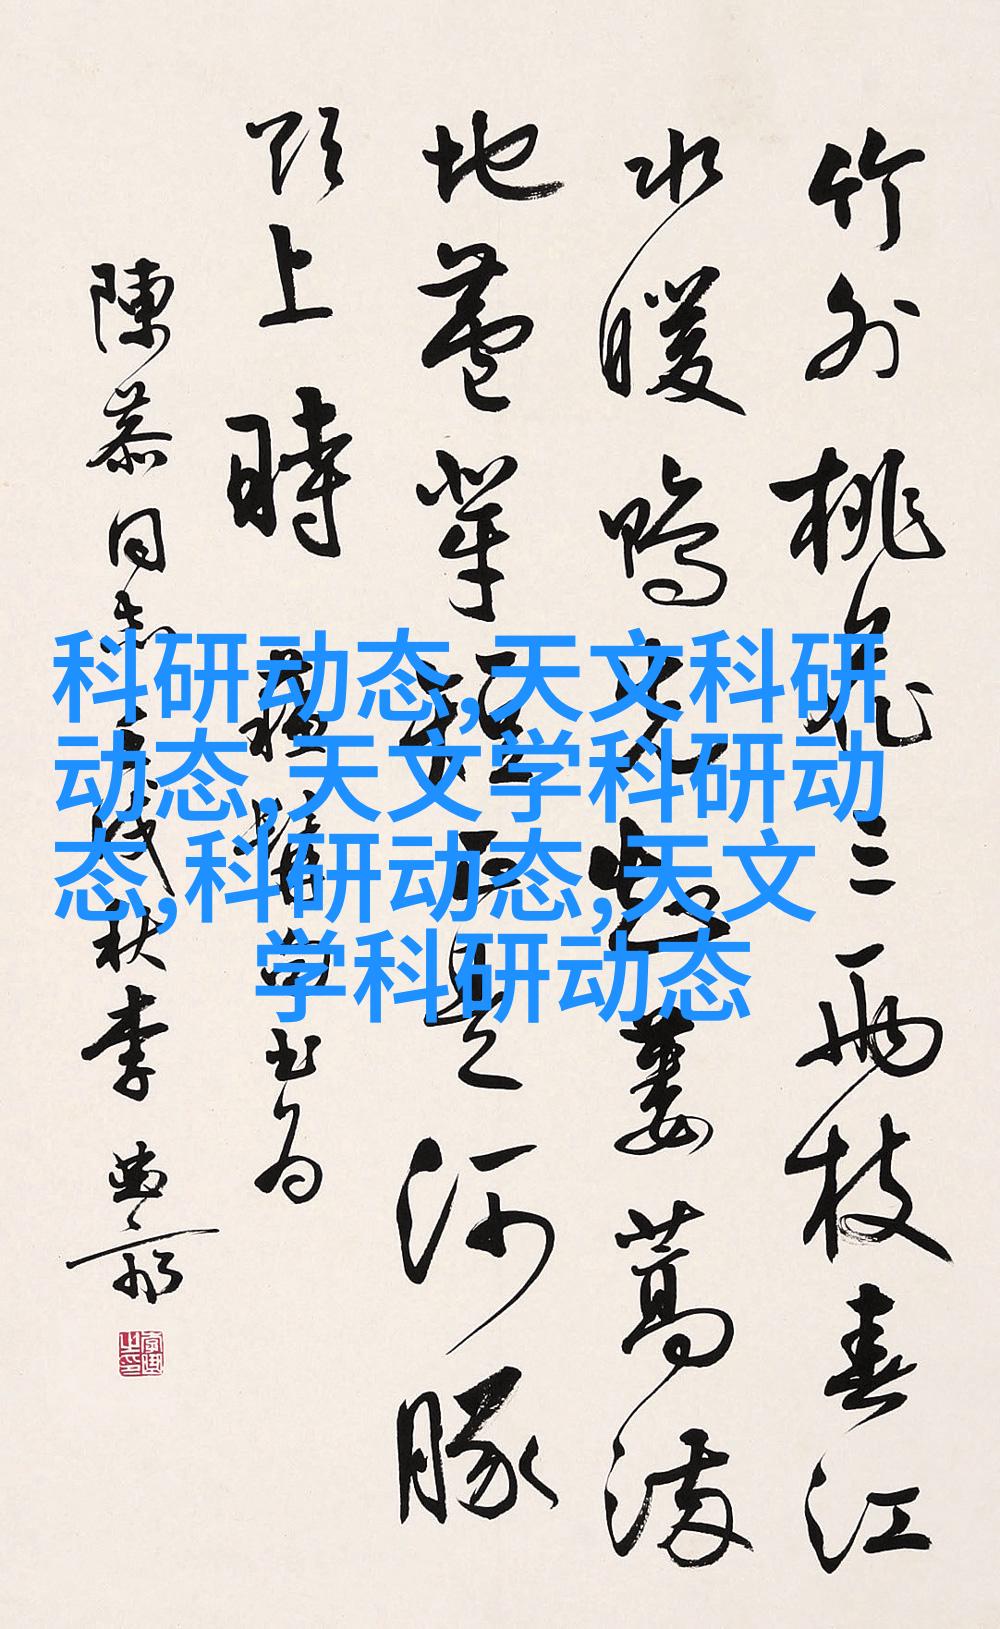 竹外桃花三兩枝春江
水暖鴨先知蔞蒿滿
地蘆芽短正是河豚
欲上時 蘇 句书为
陳 同志 秋李
科研动态,天文科研
动态,天文学科研动
态,科研动态,天文
学科研动态